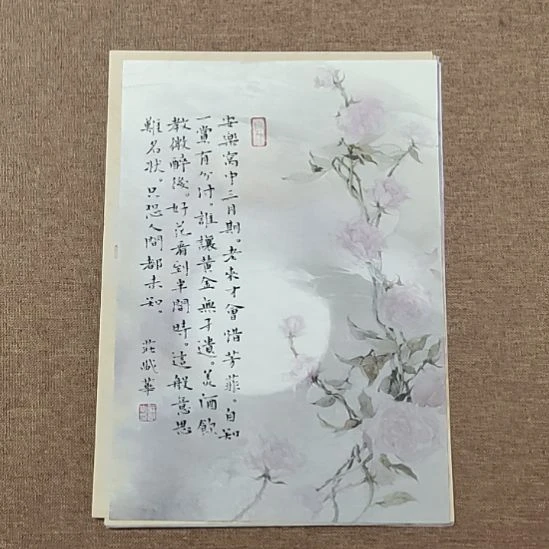 安樂窩中三月期。老來才會惜芳菲。自知
一賞有分付。誰讓黃金無孑遺。美酒飲
教微醉後。好花看到半開時。這般意思
難名狀。只恐人間都未知。 莊華